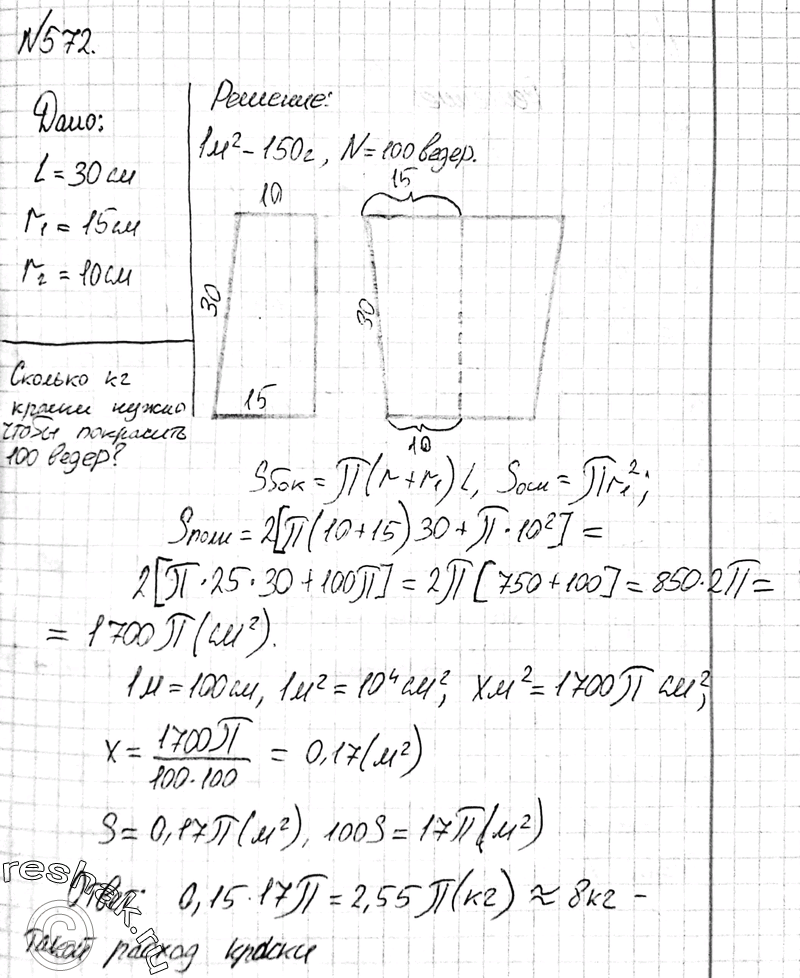 N572.
Дано:
l = 30 см
r₁ = 15 см
r₂ = 10 см
Сколько кг
краски нужно
чтобы покрасить
100 ведер?
Решение:
1м² - 150г, N = 100 ведер.
10
30
15
15
30
10
Sбок = π(r + r₁) l, Sосн = πr₁²;
Sполн = 2[π(10+15)30 + π·10²] =
2[π·25·30 + 100π] = 2π[750 + 100] = 850·2π =
= 1700π(см²).
1м = 100см, 1м² = 10⁴см², xм² = 1700π см²;
x = 1700π / 100·100 = 0,17(м²)
S = 0,17π(м²), 100S = 17π(м²)
Ответ: 0,15·17π = 2,55π(кг) ≈ 8кг -
такой расход краски
reshak.ru
©